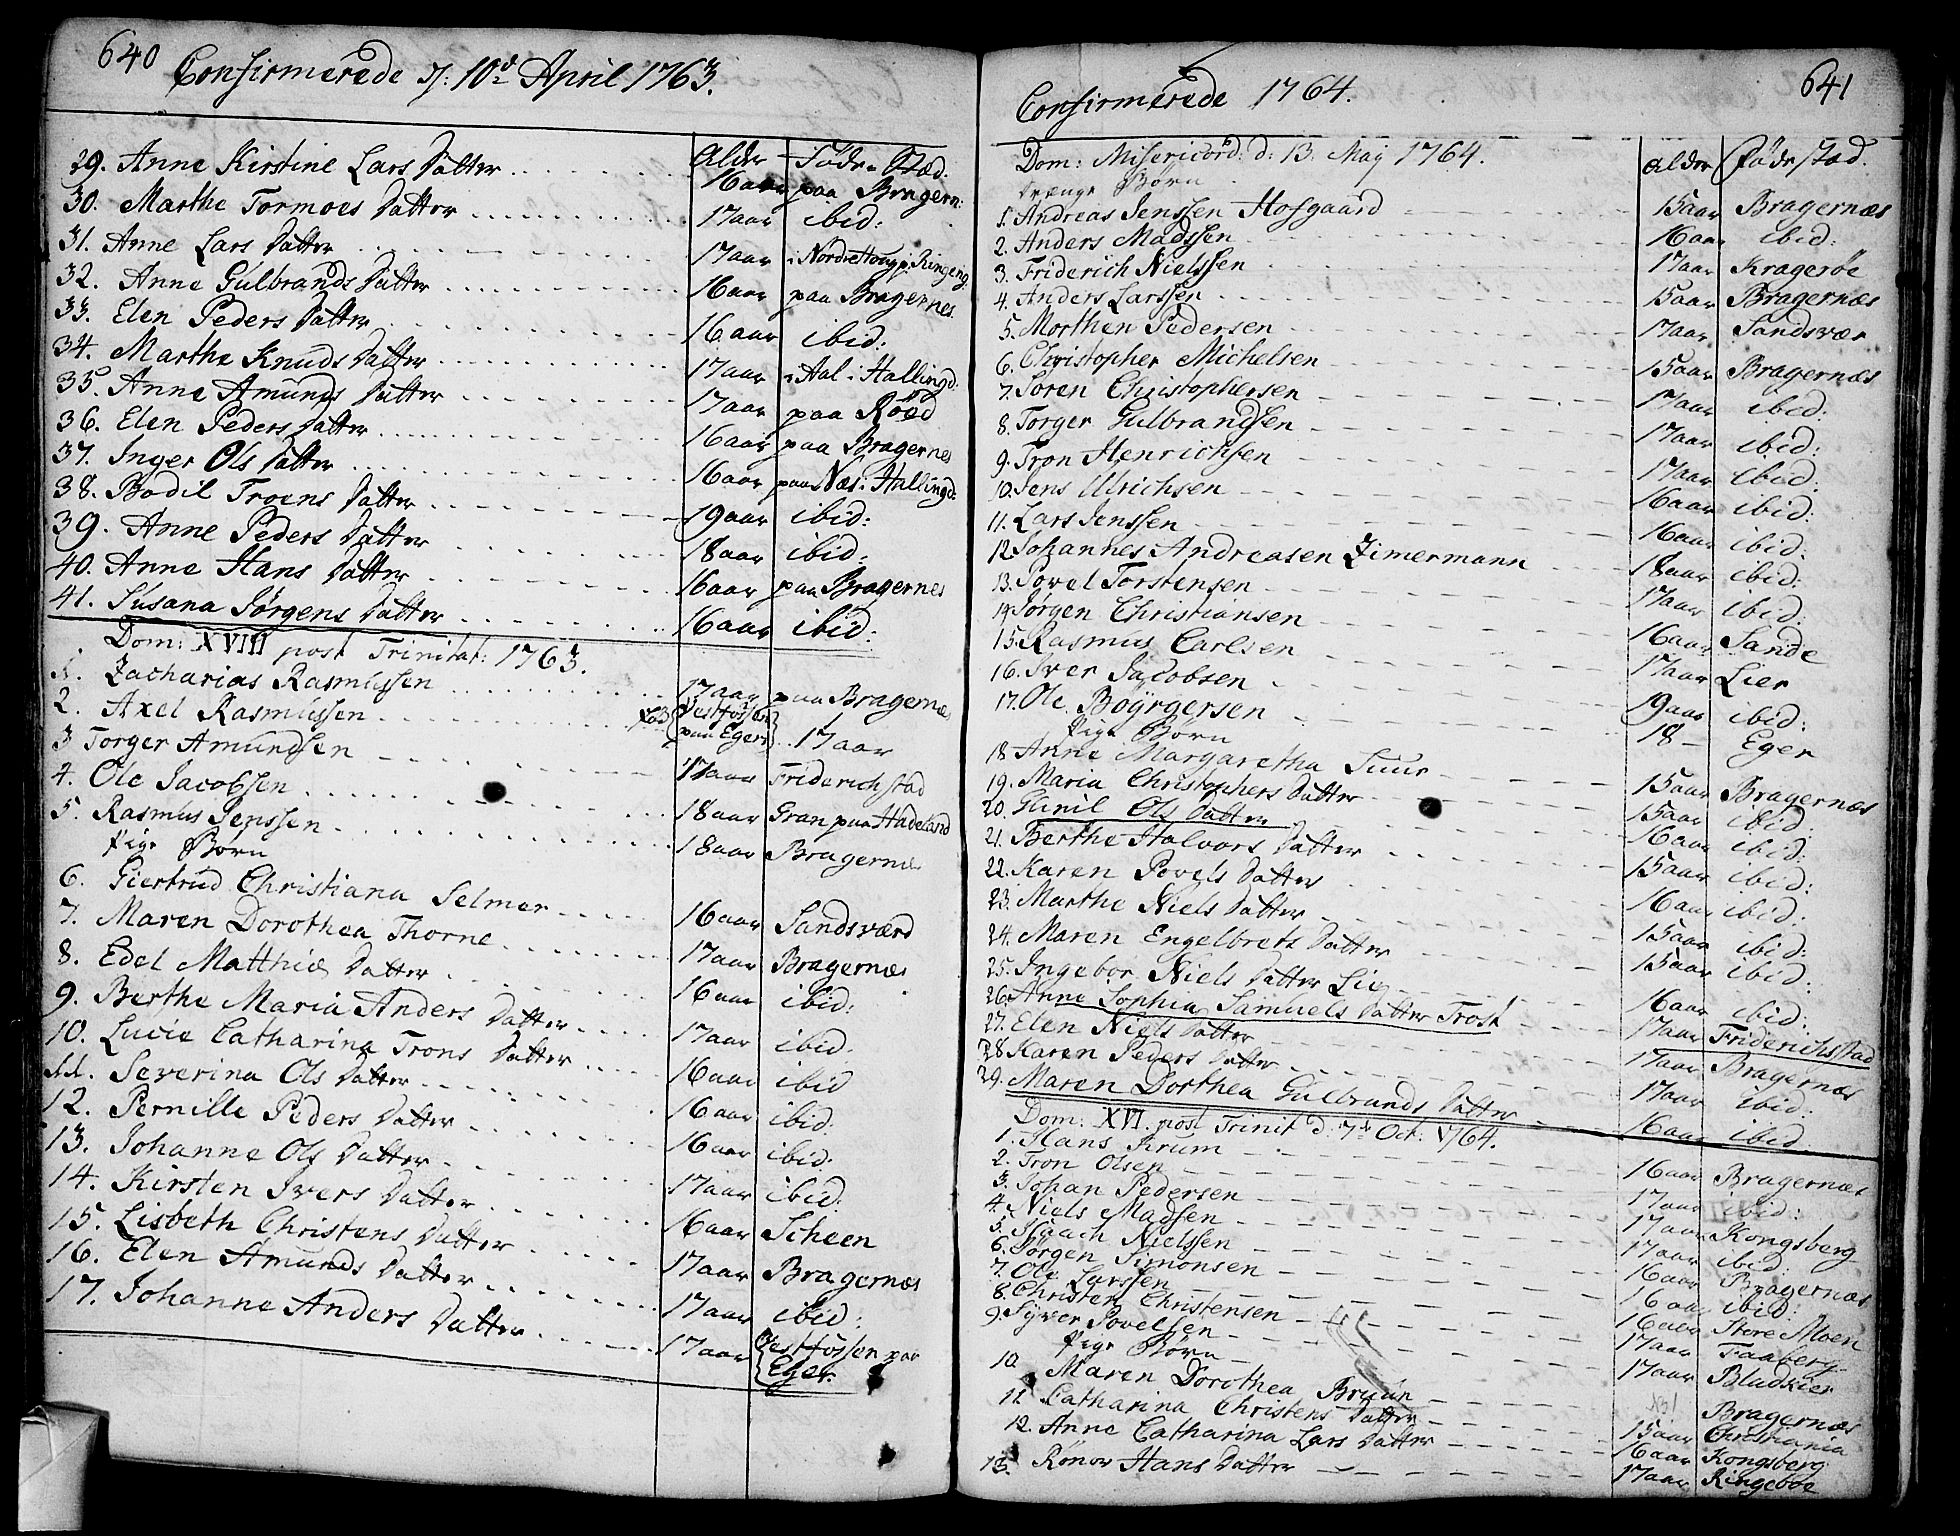 640
Confirmerede d: 10de April 1763.
Alder Føde-Stæd.
29. Anne Kirstine Lars Datter 16 aar paa Bragern:
30. Marthe Tormoes Datter 17 aar ibid:
31. Anne Lars Datter 17 aar i Nordrehoug p: Ringerig
32. Anne Gulbrands Datter 16 aar paa Bragernes
33. Elen Peders Datter 16 aar ibid:
34. Marthe Knuds Datter 17 aar i Aal i Hallingd:
35. Anne Amunds Datter 17 aar paa Röed
36. Elen Peders Datter 16 aar paa Bragernes
37. Inger Ols Datter 16 aar paa Næs i Hallingd:
38. Bodil Troens Datter 19 aar ibid:
39. Anne Peders Datter 18 aar ibid:
40. Anne Hans Datter 16 aar paa Bragernes
41. Susana Jørgens Datter 16 aar ibid:
Dom: XVIII post Trinitat: 1763.
1. Zacharias Rasmussen 17 aar paa Bragernæs
2. Axel Rasmussen Vestfossen paa Eger 17 aar
3 Torger Amundsen 17 aar Friderichstad
4. Ole Jacobsen 18 aar Gran paa Hadeland
5. Rasmus Jenssen 18 aar Bragernæs
Pige Børn
6. Giertrud Christiana Selmer 16 aar Sandsværd
7. Maren Dorothea Thorne 17 aar Bragernæs
8. Edel Matthiæ Datter 16 aar ibid:
9. Berthe Maria Anders Datter 17 aar ibid.
10. Lucie Catharina Trons Datter 16 aar ibid
11. Severina Ols Datter 16 aar ibid:
12. Pernille Peders Datter 16 aar ibid:
13. Johanne Ols Datter 17 aar ibid:
14. Kirsten Ivers Datter 16 aar Scheen
15. Lisbeth Christens Datter 17 aar Bragernæs
16. Elen Amunds Datter 17 aar ibid:
17. Johanne Anders Datter 17 aar Vestfossen paa Eger.
641
Confirmerede 1764.
Dom: Misericord: d: 13. Maÿ 1764. Alder Føde stæd.
Drænge Børn
1. Andreas Jenssen Hofgaard 15 aar Bragernæs
2. Anders Madssen 16 aar ibid:
3. Friderich Nielssen 17 aar Kragerøe
4. Anders Larssen 15 aar Bragernæs
5. Morthen Pedersen 17 aar Sandsvær
6. Christopher Michelsen 15 aar Bragernæs
7. Søren Christophersen 17 aar ibid.
8. Torger Gulbrandsen 17 aar ibid:
9. Tron Henrichsen 17 aar ibid:
10. Jens Ulrichsen 16 aar ibid:
11. Lars Jenssen 16 aar ibid:
12. Johannes Andreasen Zimermann 18 aar ibid:
13. Povel Torstensen 17 aar ibid:
14. Jørgen Christiansen 16 aar Sande
15. Rasmus Carlsen 17 aar Lier
16. Iver Jacobsen 19 aar ibid:
17. Ole Boÿrgersen 18 - Eger
Pige Børn
18. Anne Margaretha Suur 15 aar Bragernæs
19. Maria Christophers Datter 15 aar ibid:
20. Gunil Ols Datter 16 aar ibid:
21. Berthe Halvors Datter 15 aar ibid:
22. Karen Povels Datter 16 aar ibid:
23. Marthe Niels Datter 15 aar ibid:
24. Maren Engelbrets Datter 15 aar ibid:
25. Ingebor Niels Datter Lie 16 aar ibid:
26. Anne Sophia Samuels Datter Trost 17 aar Friderichstad
27. Elen Niels Datter 17 aar Bragernæs
28. Karen Peders Datter 17 aar ibid:
29. Maren Dorthea Gulbrands Datter 16 aar ibid
Dom: XVI. post Trinit d. 7de Oct: 1764.
1. Hans Krum 16 aar Bragernæs
2. Tron Olsen 17 aar ibid:
3. Johan Pedersen 17 aar Kongsberg
4. Niels Madsen 17 aar ibid:
5. Isaach Nielssen 16 aar Bragernæs
6. Jørgen Simonsen 16 aar ibid:
7. Ole Larssen 16 aar Store Moen
8. Christen Christensen 17 aar Faaberg
9. Syver Povelsen 17 aar Bludkier
Pige Børn
10. Maren Dorothea Bruun Bragernæs
11. Catharina Christens Datter 15 aar Christiania
12. Anne Catharina Lars Datter 16 aar Kongsberg
13. Rønov Hans Datter 17 aar Ringeboe